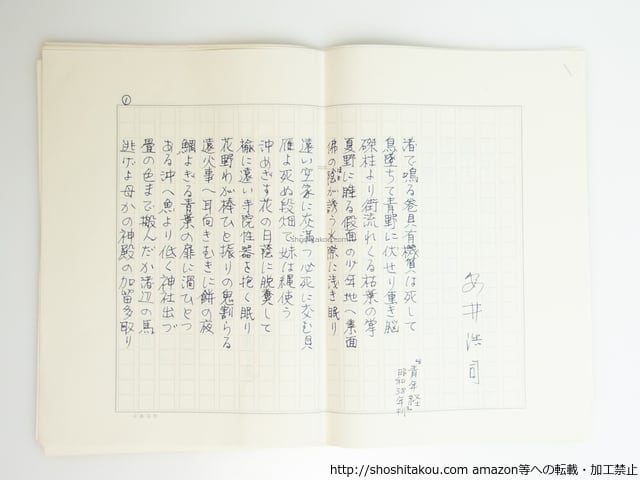 ①
安井浩司
『青年経』
昭和38年刊
渚で鳴る巻貝有機質は死して
鳥墜ちて青野に伏せり重き脳
磔柱より街流れくる枯葉の掌
夏野に睡る仮面の少年地へ素面
佛の陰が誘う水際に浅き眠り
遠い空家に灰満つ必死に交む貝
雁よ死ぬ段畑で妹は縄使う
沖めざす花の日陰に脱糞して
椿に遠い寺院性器を抱く眠り
花野わが棒ひと振りの鬼割らる
遠火事へ耳向きむきに餅の夜
鯛よぎる青葉の扉に渇ひとつ
ある沖へ魚より低く神社出づ
畳の色まで搬んだか渚辺の馬
逃げよ母かの神殿の加留多取り
Shoshitakou.com
http://shoshitakou.com amazon等への転載・加工禁止